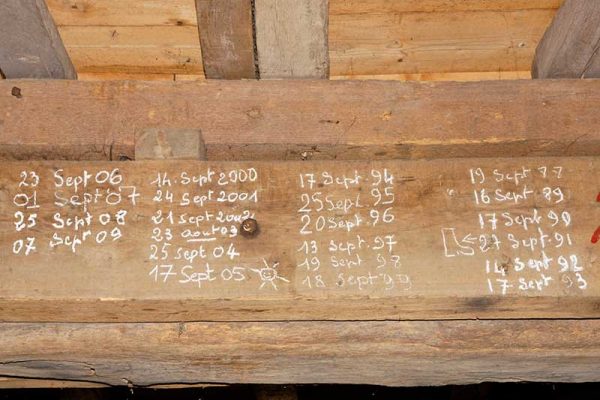 23 Sept 06
01 Sept 07
25 Sept 08
07 Sept 09
14. Sept 2000
24 Sept 2001
21 Sept 2002
23 aout 03
25 Sept 04
17 Sept 05
17 Sept. 94
25 Sept. 95
20 Sept. 96
13 Sept. 97
19 Sept. 98
18 Sept. 99
19 Sept
16 Sept. 89
17 Sept 90
27 Sept. 91
14 Sept. 92
17 Sept. 93